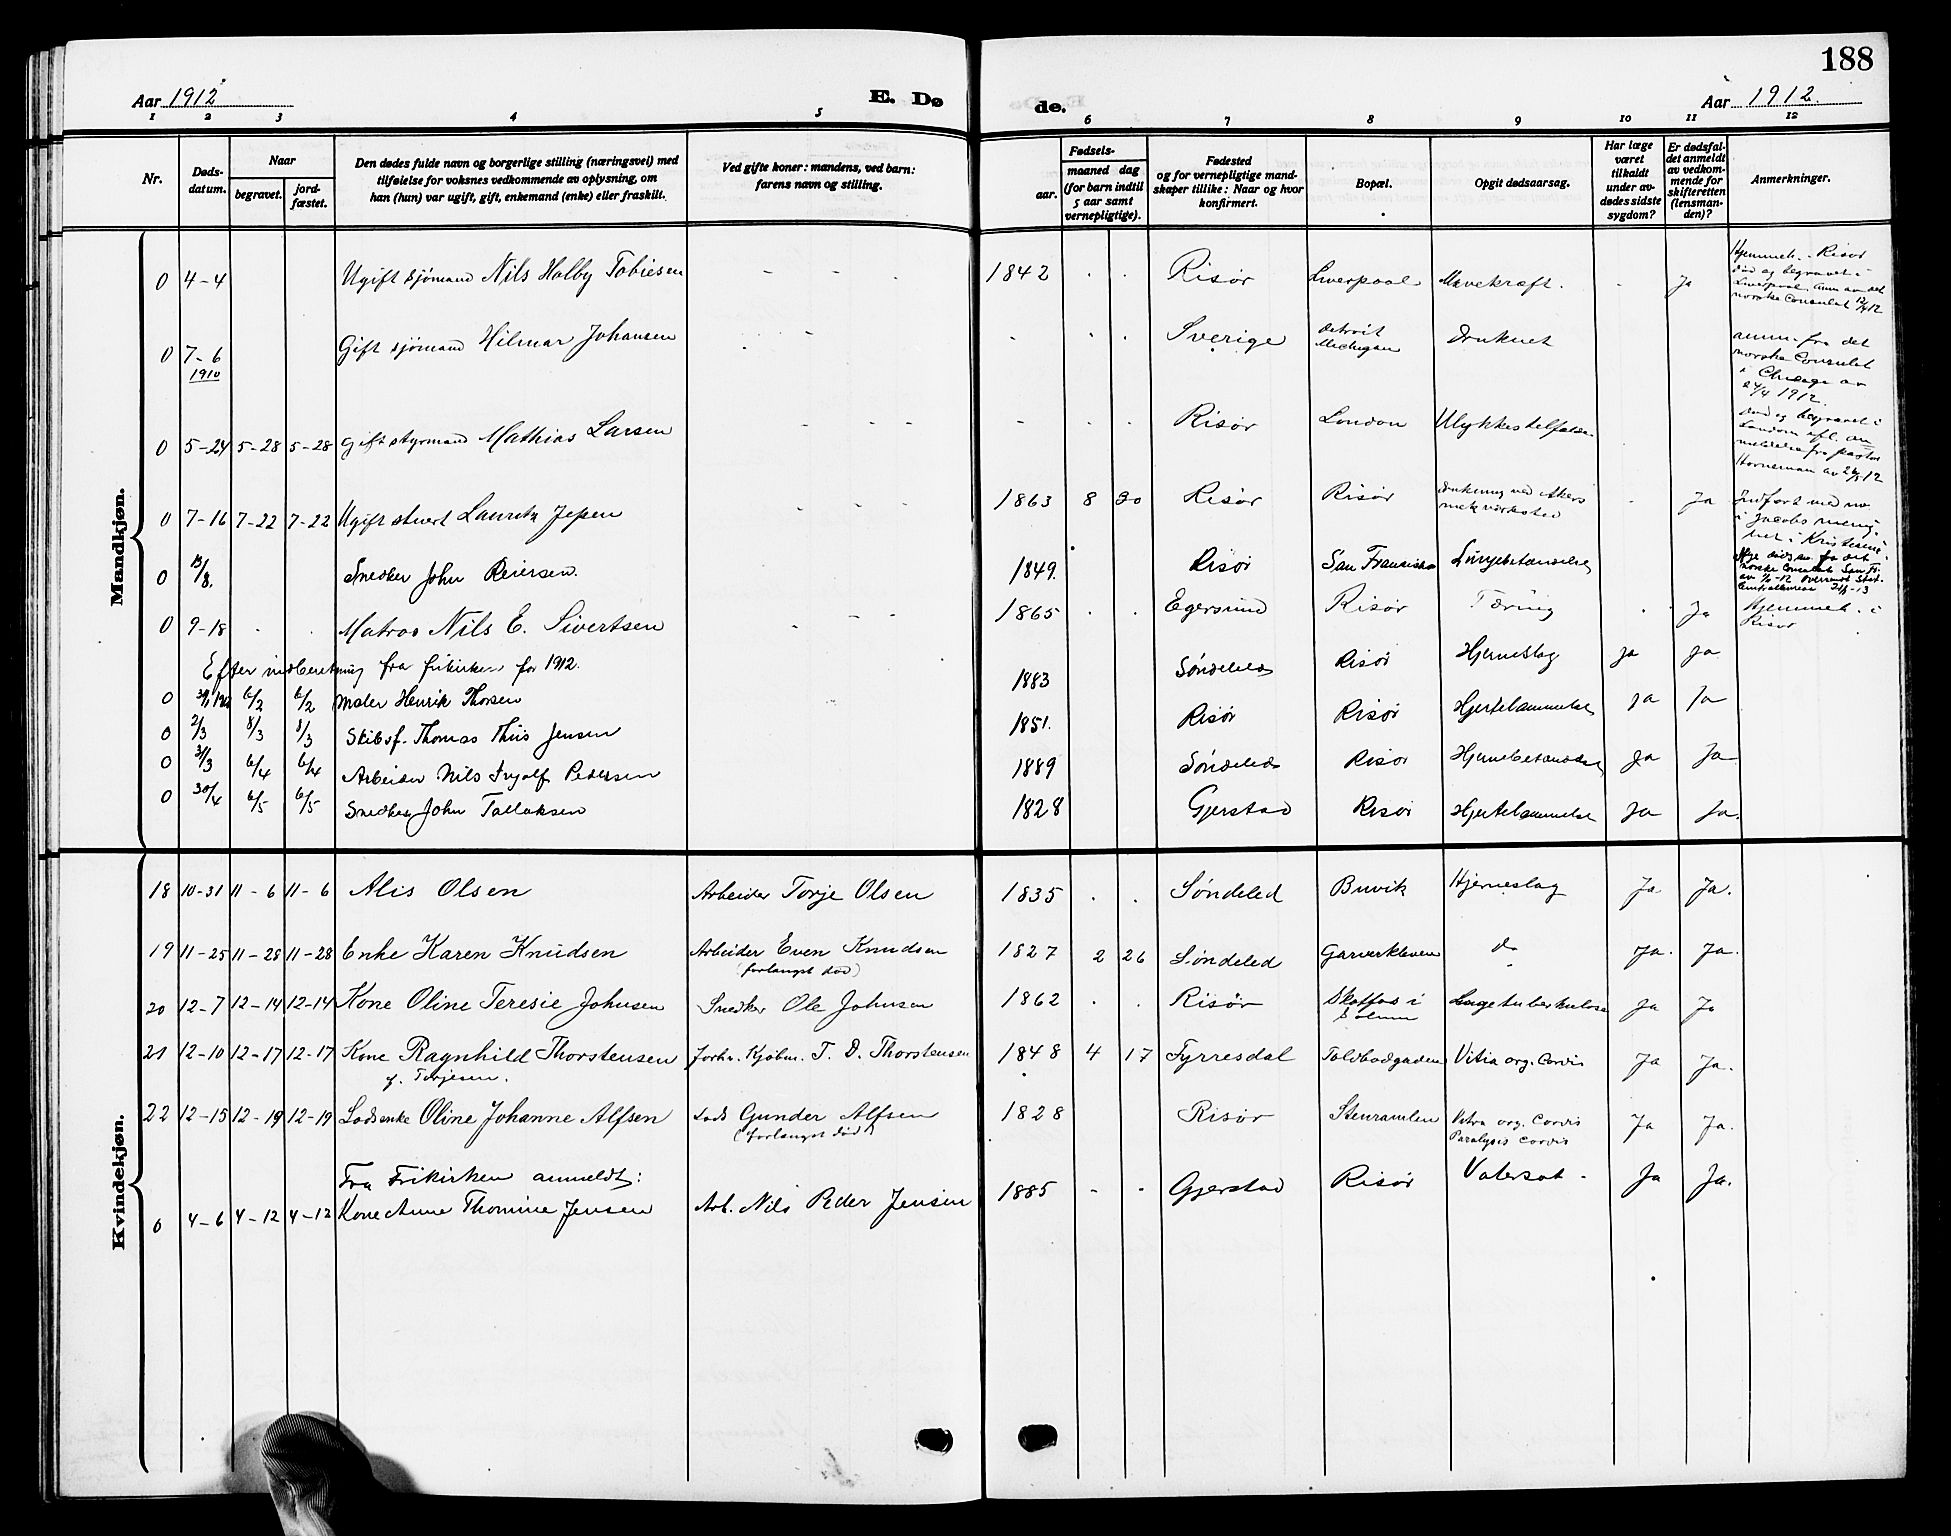 188
Aar 1912
E. Dø
de.
Aar 1912.
1 2 3 4 5 6 7 8 9 10 11 12
Nr.
Døds-
datum.
Naar
begravet.
jord-
fæstet.
Den dødes fulde navn og borgerlige stilling (næringsvei) med
tilføielse for voksnes vedkommende av oplysning, om
han (hun) var ugift, gift, enkemand (enke) eller fraskilt.
Ved gifte koner: mandens, ved barn:
farens navn og stilling.
Fødsels-
aar.
maaned dag
(for barn indtil
5 aar samt
vernepligtige).
Fødested
og for vernepligtige mand-
skaper tillike: Naar og hvor
konfirmert.
Bopæl.
Opgit dødsaarsag.
Har læge
været
tilkaldt
under av-
dødes sidste
sygdom?
Er dødsfal-
det anmeldt
av vedkom-
mende for
skifteretten
(lensman-
den)?
Anmerkninger.
Mandkjøn.
0 4-4 Ugift sjømand Nils Holby Tobiesen - - . 1842 . . Risør Liverpool Mavekræft. . Ja
Hjemmeh. i Risør
død og begravet i
Liverpool. Anm av det
norske Consulat 12/4 12
0 7-6 Gift sjømand Hilmar Johansen - . - . . . Sverige Detroit Druknet
1910
Michigan
anm. fra det
norske Consulat
i Chicago av
24/4 1912.
0 5-24 5-28 5-28 Gift styrmand Mathias Larsen - - - - . . Risør London Ulykkestilfælde
død og begravet i
London efl. an
meldelse fra pastor
Horneman av 28/5 12
0 7-16 7-22 7-22 Ugift stuert Lauritz Jepsen - - 1863 8 30 Risør Risør Drukning ved Akers - Ja
mek værksted
Indført med no
i Jacobs menig-
het i Kristiania.
0 13/8. Snedker John Reiersen. 1849. Risør San Francisko Lungebetændelse
norske Consulat San Fr.
0 9-18 . . Matros Nils E. Sivertsen - - 1865 . . Egersund Risør Tæring . Ja
Hjemmeh. i
Risør
Efter indberetning fra frikirken for 1912.
0 31/1 1912 6/2 6/2 Maler Henrik Thorsen 1883 Søndeled Risør Hjerneslag Ja Ja
0 2/3 8/3 8/3 Skibsf. Thomas Thiis Jensen 1851. Risør Risør Hjertelammelse Ja Ja
0 31/3 6/4 6/4 Arbeider Nils Ingolf Pedersen 1889 Søndeled Risør Hjernebetændelse Ja Ja
0 30/4 6/5 6/5 Snedker John Tallaksen 1828 Gjerstad Risør Hjertelammelse Ja Ja.
Kvindekjøn.
18 10-31 11-6 11-6 Alis Olsen Arbeider Torje Olsen 1835 . . Søndeled Buvik Hjerneslag Ja Ja.
19 11-25 11-28 11-28 Enke Karen Knudsen Arbeider Even Knudsen 1827 2 26 Søndeled Garverkleven do Ja. Ja.
(forlængst død)
20 12-7 12-14 12-14 Kone Oline Teresie Johnsen Snedker Ole Johnsen 1862 . . Risør Skotfos i Lugetuberkulose Ja Ja
Solum
21 12-10 12-17 12-17 Kone Ragnhild Thorstensen Forhv. Kjøbm. T. D. Thorstensen 1848 4 17 Fyrresdal Toldbodgaden Vitia org. Cordis Ja Ja.
f. Torjesen.
22 12-15 12-19 12-19 Lodsenke Oline Johanne Alfsen Lods Gunder Alfsen 1828 Risør Stenramlen Vitia org. Cordis Ja Ja.
(forlængst død)
Paralysis cordis
Fra Frikirken anmeldt:
0 4-6 4-12 4-12 Kone Anne Thomine Jensen Arb. Nils Peder Jensen 1885 - - Gjerstad Risør Vatersot - Ja Ja.